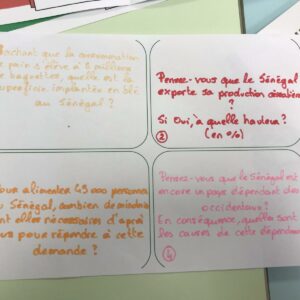 Sachant que la consommation
de pain s'élève à 8 millions
de baguettes, quelle est la
superficie implantée en blé
au Sénégal ?
Pensez-vous que le Sénégal
exporte sa production céréalière
?
Si Oui, à quelle hauteur ?
(en %)
②
Pour alimenter 45 000 personnes
au Sénégal, combien de
sont elles nécessaires d'après
vous pour répondre à cette
demande ?
Pensez-vous que le Sénégal est
encore un pays dépendant des
occidentaux ?
En conséquence, quelles sont
les causes de cette dépendance
④